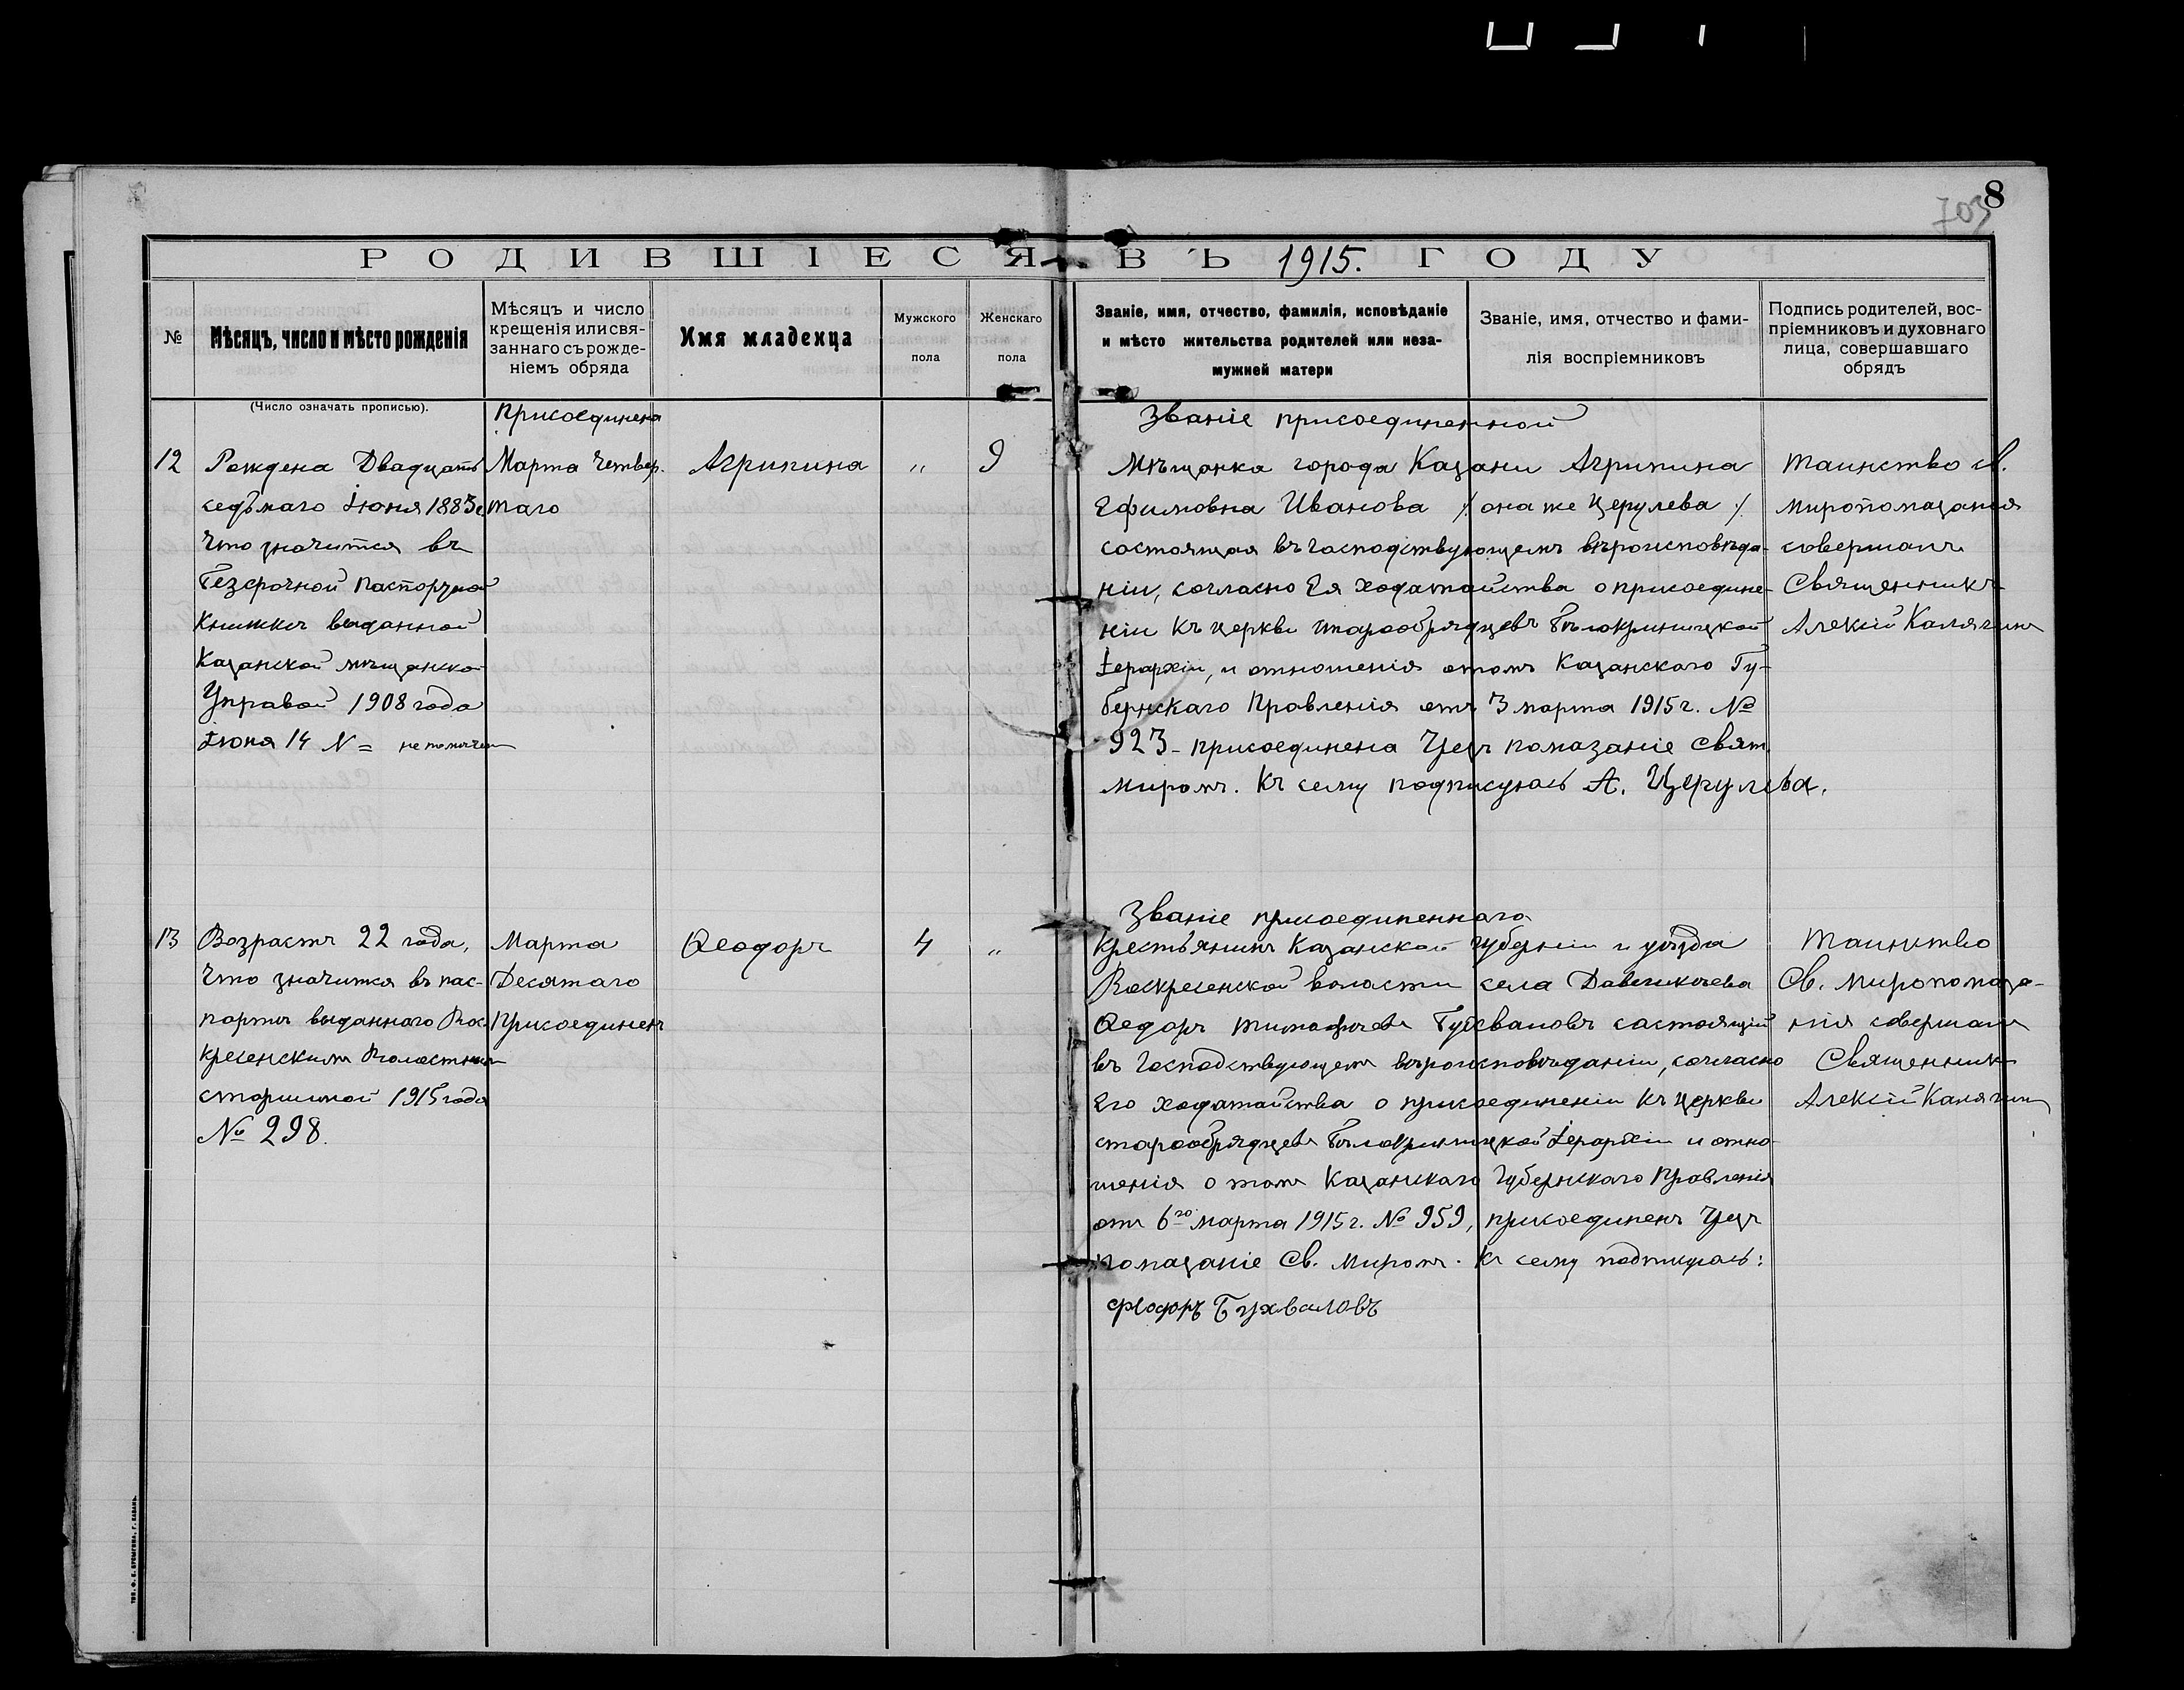 8
703
РОДИВШІЕСЯ ВЪ 1915. ГОДУ
№
Мѣсяцъ, число и мѣсто рожденія
Мѣсяцъ и число
крещенія или свя-
заннаго съ рожде-
ніемъ обряда
Имя младенца
Мужского
пола
Женскаго
пола
Званіе, имя, отчество, фамилія, исповѣданіе
и мѣсто жительства родителей или неза-
мужней матери
Званіе, имя, отчество и фами-
лія воспріемниковъ
Подпись родителей, вос-
пріемниковъ и духовнаго
лица, совершавшаго
обрядъ
(Число означать прописью).
12
Рождена Двадцать
седьмаго Іюня 1883 г.
Что значится въ
Безсрочной паспортной
Книжкѣ выданной
Казанской мѣщанской
Управой 1908 года
Іюня 14 № = не помѣчен
Присоединена
Марта Четвер-
таго
Агрипина
"
9
Званіе присоединенной
Мѣщанка города Казани Агрипина
Ефимовна Иванова /она же Церулева/
состоящая въ господствующемъ вѣроисповѣда-
ніи, согласно Ея ходатайства о присоедине-
ніи къ церкви старообрядцевъ Бѣлокриницкой
Іерархіи, и отношенія о томъ Казанскаго Гу-
бернскаго Правленія отъ 3 марта 1915 г. №
923 - присоединена Чрезъ помазаніе Свят.
миромъ. Къ сему подписуюсь А. Церулева.
Таинство св.
миропомазанія
совершалъ
Священникъ
Алексій Калягинъ
13
Возрастъ 22 года,
Что значится въ пас-
портѣ выданного Вос-
кресенскимъ Волостнымъ
старшиной 1915 года
№ 298.
Марта
Десятаго
Присоединенъ
Ѳеодоръ
4
"
Званіе присоединеннаго
Крестьянинъ Казанской губерніи и уѣзда
Воскресенской волости села
Ѳедоръ Тимофѣевъ состоящій
въ Господствующемъ вѣроисповѣданіи, согласно
Его ходатайства о присоединеніи къ церкви
старообрядцевъ Бѣлокриницкой Іерархіи и отно-
шенія о томъ Казанскаго Губернскаго Правленія
отъ 6го марта 1915 г. № 959, присоединенъ Чрезъ
помазаніе Св. Миромъ. Къ сему подписуюсь:
Ѳеодоръ Бухваловъ
Таинство
Св. Миропомаза-
нія совершалъ
Священникъ
Алексій Калягинъ